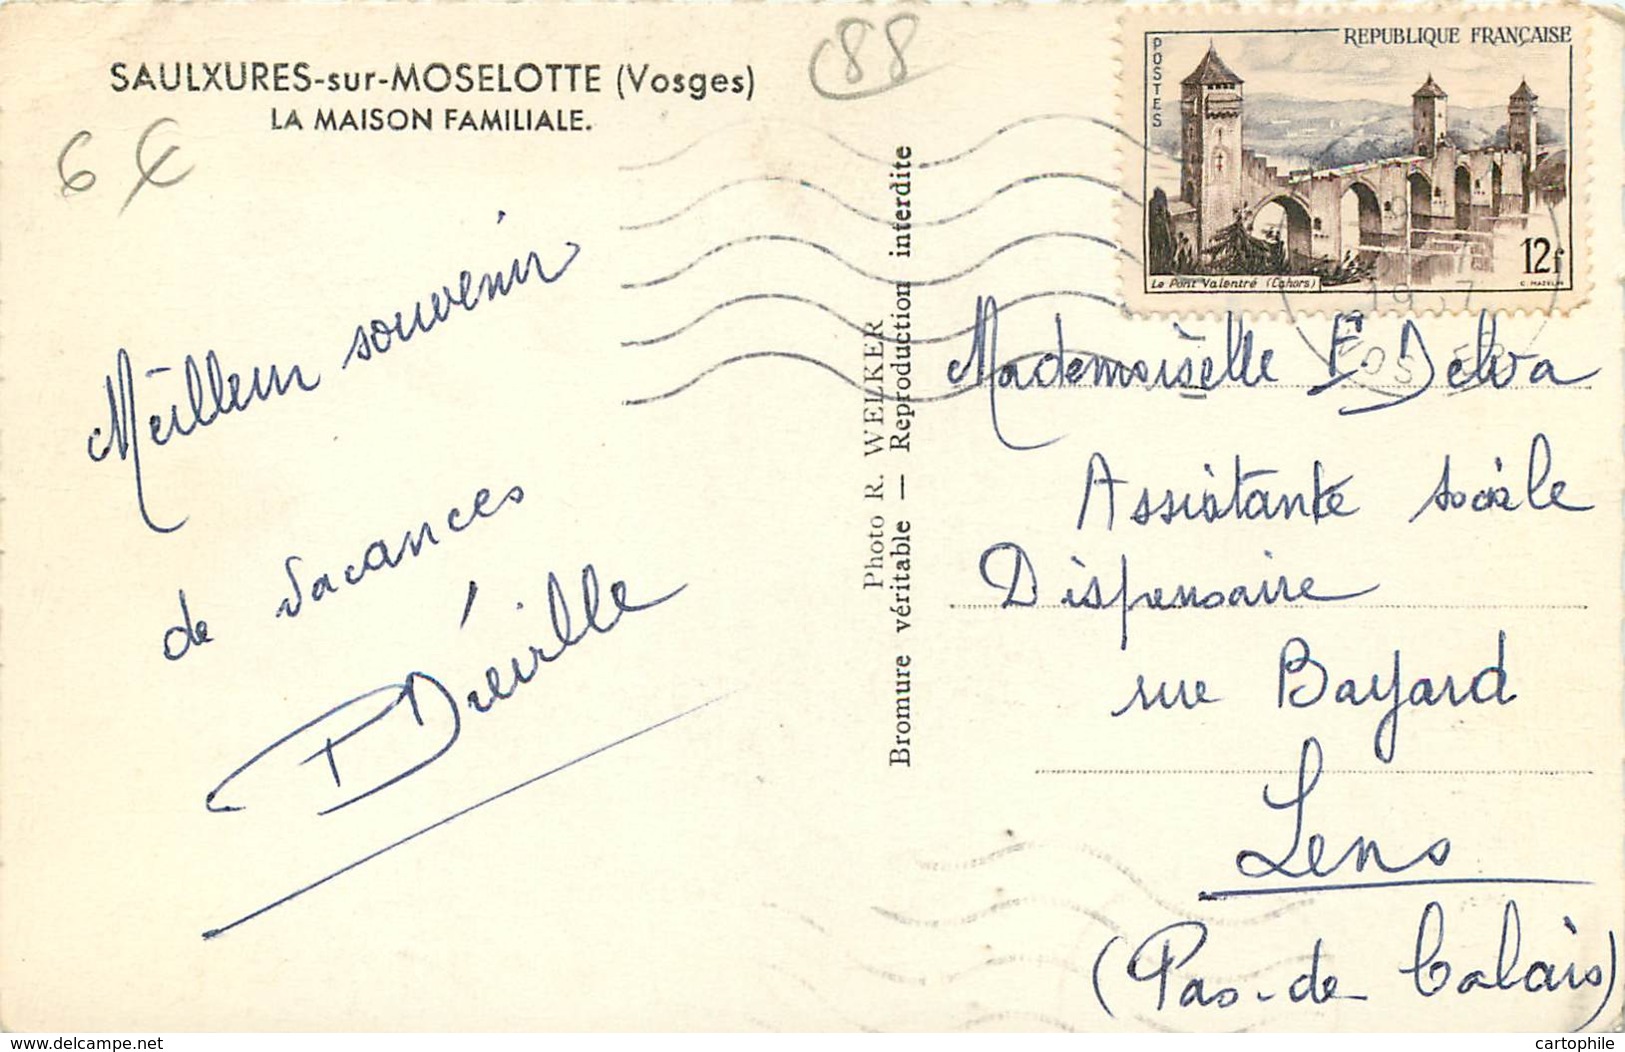 SAULXURES-sur-MOSELOTTE (Vosges)
LA MAISON FAMILIALE.
6 €
88
Meilleur souvenir
de vacances
Bromure véritable — Reproduction interdite
Photo R. WELKER
REPUBLIQUE FRANÇAISE
POSTES
12f
Le Pont Valentré (Cahors)
C. MAZELIN
1957
VOSGES
Mademoiselle E. Delva
Assistante sociale
Dispensaire
rue Bayard
Lens
(Pas-de Calais)
delcampe.net
cartophile